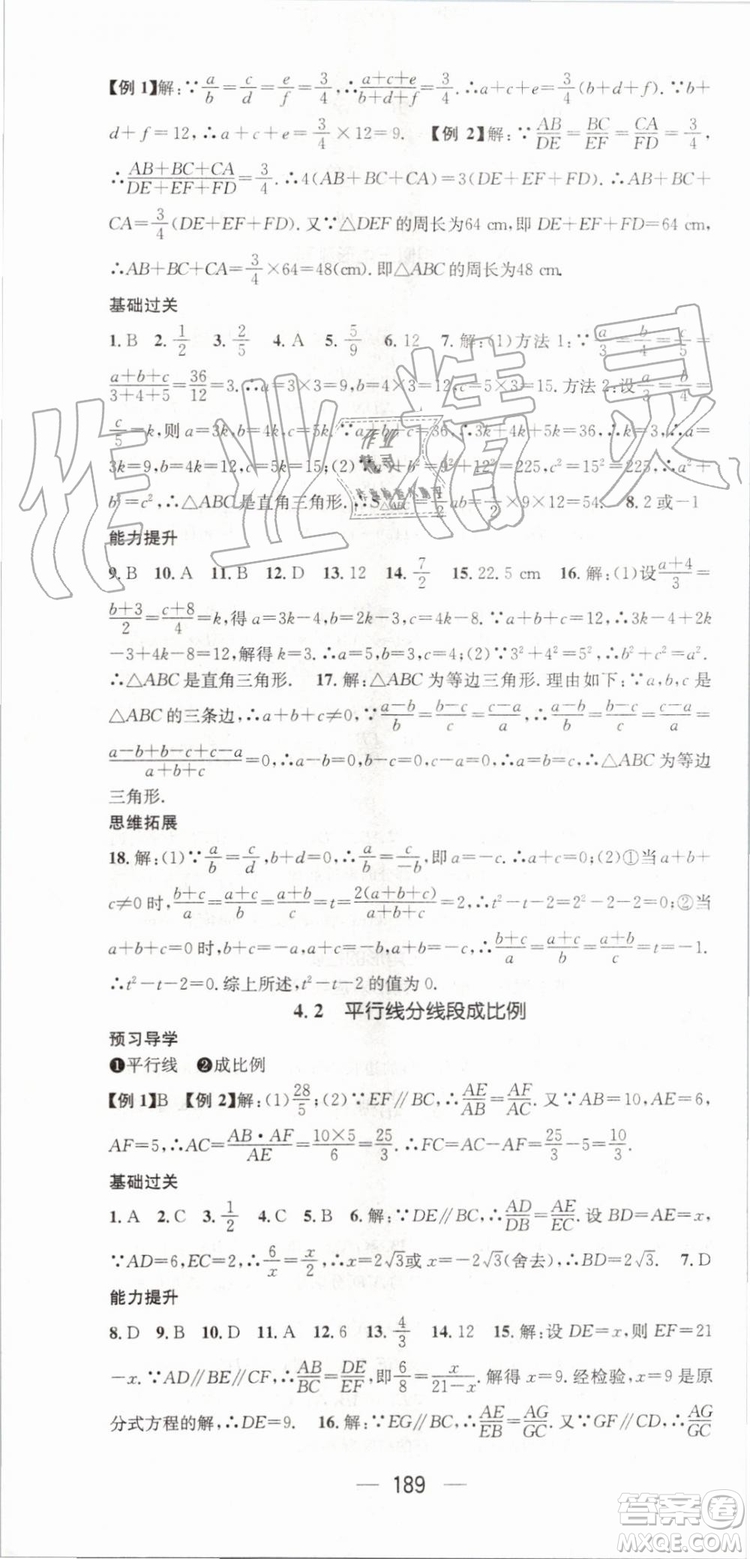 【例1】解:∵a/b=c/d=e/f=3/4,∴(a+c+e)/(b+d+f)=3/4.∴a+c+e=3/4(b+d+f).∵b+
d+f=12,∴a+c+e=3/4×12=9. 【例2】解:∵AB/DE=BC/EF=CA/FD=3/4,
∴(AB+BC+CA)/(DE+EF+FD)=3/4.∴4(AB+BC+CA)=3(DE+EF+FD),即AB+BC+
CA=3/4(DE+EF+FD).又∵△DEF的周长为64 cm,即DE+EF+FD=64cm,
∴AB+BC+CA=3/4×64=48(cm).即△ABC的周长为48cm.
基础过关
1.B 2.1/2 3.2/5 4.A 5.5/9 6.12 7.解:(1)方法1:∵a/3=b/4=c/5=
(a+b+c)/(3+4+5)=36/12=3.∴a=3×3=9,b=4×3=12,c=5×3=15.方法2:设a/3=b/4=
c/5=k,则a=3k,b=4k,c=5k.∵a+b+c=36,∴3k+4k+5k=36,∴k=3.∴a=
3k=9,b=4k=12,c=5k=15.(2)∵a²+b²=9²+12²=225,c²=15²=225,∴a²+
b²=c²,∴△ABC是直角三角形.∴S△ABC=1/2ab=1/2×9×12=54. 8.2或-1
能力提升
9.B 10.A 11.B 12.D 13.12 14.7/2 15.22.5 cm 16.解:(1)设(a+4)/3=
(b+3)/2=(c+8)/4=k,得a=3k-4,b=2k-3,c=4k-8.∵a+b+c=12,∴3k-4+2k
-3+4k-8=12,解得k=3.∴a=5,b=3,c=4.(2)∵3²+4²=5²,∴b²+c²=a².
∴△ABC是直角三角形. 17.解:△ABC为等边三角形.理由如下:∵a,b,c是
△ABC的三条边,∴a+b+c≠0.∵(a-b)/c=(b-c)/a=(c-a)/b,∴(a-b)/c=(b-c)/a=(c-a)/b=
(a-b+b-c+c-a)/(a+b+c)=0,∴a-b=b-c=c-a=0,∴a=b=c,∴△ABC为等边
三角形.
思维拓展
18.解:(1)∵a/b=c/d,b+d=0,∴a/b=c/d=(a+c)/(b+d),即a+c=0,∴a=-c.(2)①当a+b+
c≠0时,(b+c)/a=(a+c)/b=(a+b)/c=t=2(a+b+c)/(a+b+c)=2,∴t²-t-2=2²-2-2=0;②当
a+b+c=0时,b+c=-a,a+c=-b,a+b=-c,∵(b+c)/a=(a+c)/b=(a+b)/c=t=-1.
∴t²-t-2=0.综上所述,t²-t-2的值为0.
4.2 平行线分线段成比例
预习导学
❶平行线 ❷成比例
【例1】B 【例2】解:(1)28/5;(2)∵EF∥BC,∴AE/AB=AF/AC.又∵AB=10,AE=6,
AF=5,∴AC=AB·AF/AE=10×5/6=25/3.∴FC=AC-AF=25/3-5=10/3.
基础过关
1.A 2.C 3.1/2 4.C 5.B 6.解:∵DE∥BC,∴AD/DB=AE/EC.设BD=AE=x,
∵AD=6,EC=2,∴6/x=x/2,∴x=2√3或x=-2√3(舍去),∴BD=2√3. 7.D
能力提升
8.D 9.B 10.D 11.A 12.6 13.4/3 14.12 15.解:设DE=x,则EF=21
-x.∵AD∥BE∥CF,∴AB/BC=DE/EF,即6/8=x/(21-x).解得x=9.经检验,x=9是原
分式方程的解,∴DE=9. 16.解:∵EG∥BC,∴AE/EB=AG/GC.又∵GF∥CD,∴AG/GC=
189
作业精灵
作业
精灵
答案圈
MXQE.COM